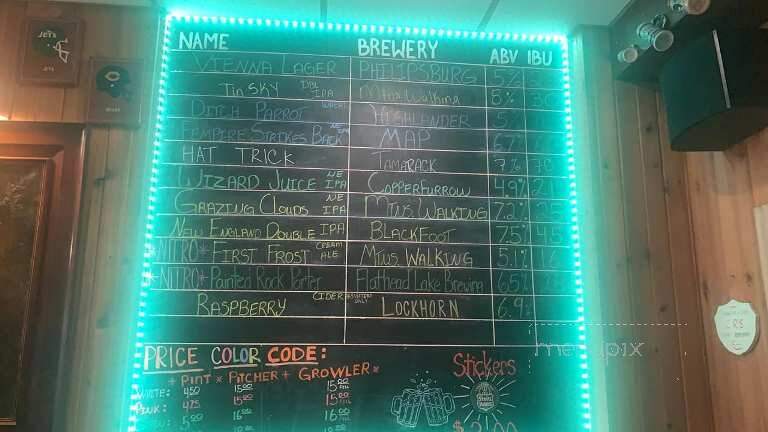 JETS
NAME BREWERY ABV IBU
VIENNA LAGER PHILIPSBURG 5%
TIN SKY IPA Mtns Walking 8%
DITCH PARROT WHEAT HIGHLANDER 5
EMPIRE STRIKES BACK MAP 6.7
HAT TRICK TAMARACK 7%
WIZARD JUICE NE IPA COPPER FURROW 4.9%
GRAZING CLOUDS NE IPA MTNS. WALKING 7.2%
NEW ENGLAND DOUBLE IPA BLACKFOOT 7.5 45
*NITRO* FIRST FROST CREAM ALE MTNS. WALKING 5.1 16
*NITRO* Painted Rock Porter Flathead Lake Brewing 6.5
RASPBERRY CIDER LOCKHORN 6.9
PRICE COLOR CODE:
PINT PITCHER GROWLER
WHITE: 450 15.00 15.00
PINK: 475 15.00 15.00
5.00 16.00 16.00
Stickers
$2.00
menupix